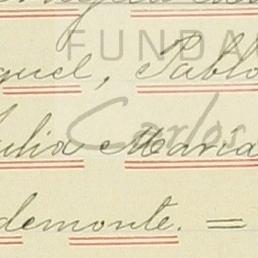 FUNDA
guel, Pablo
Carlos
ulia Maria
demonte. =